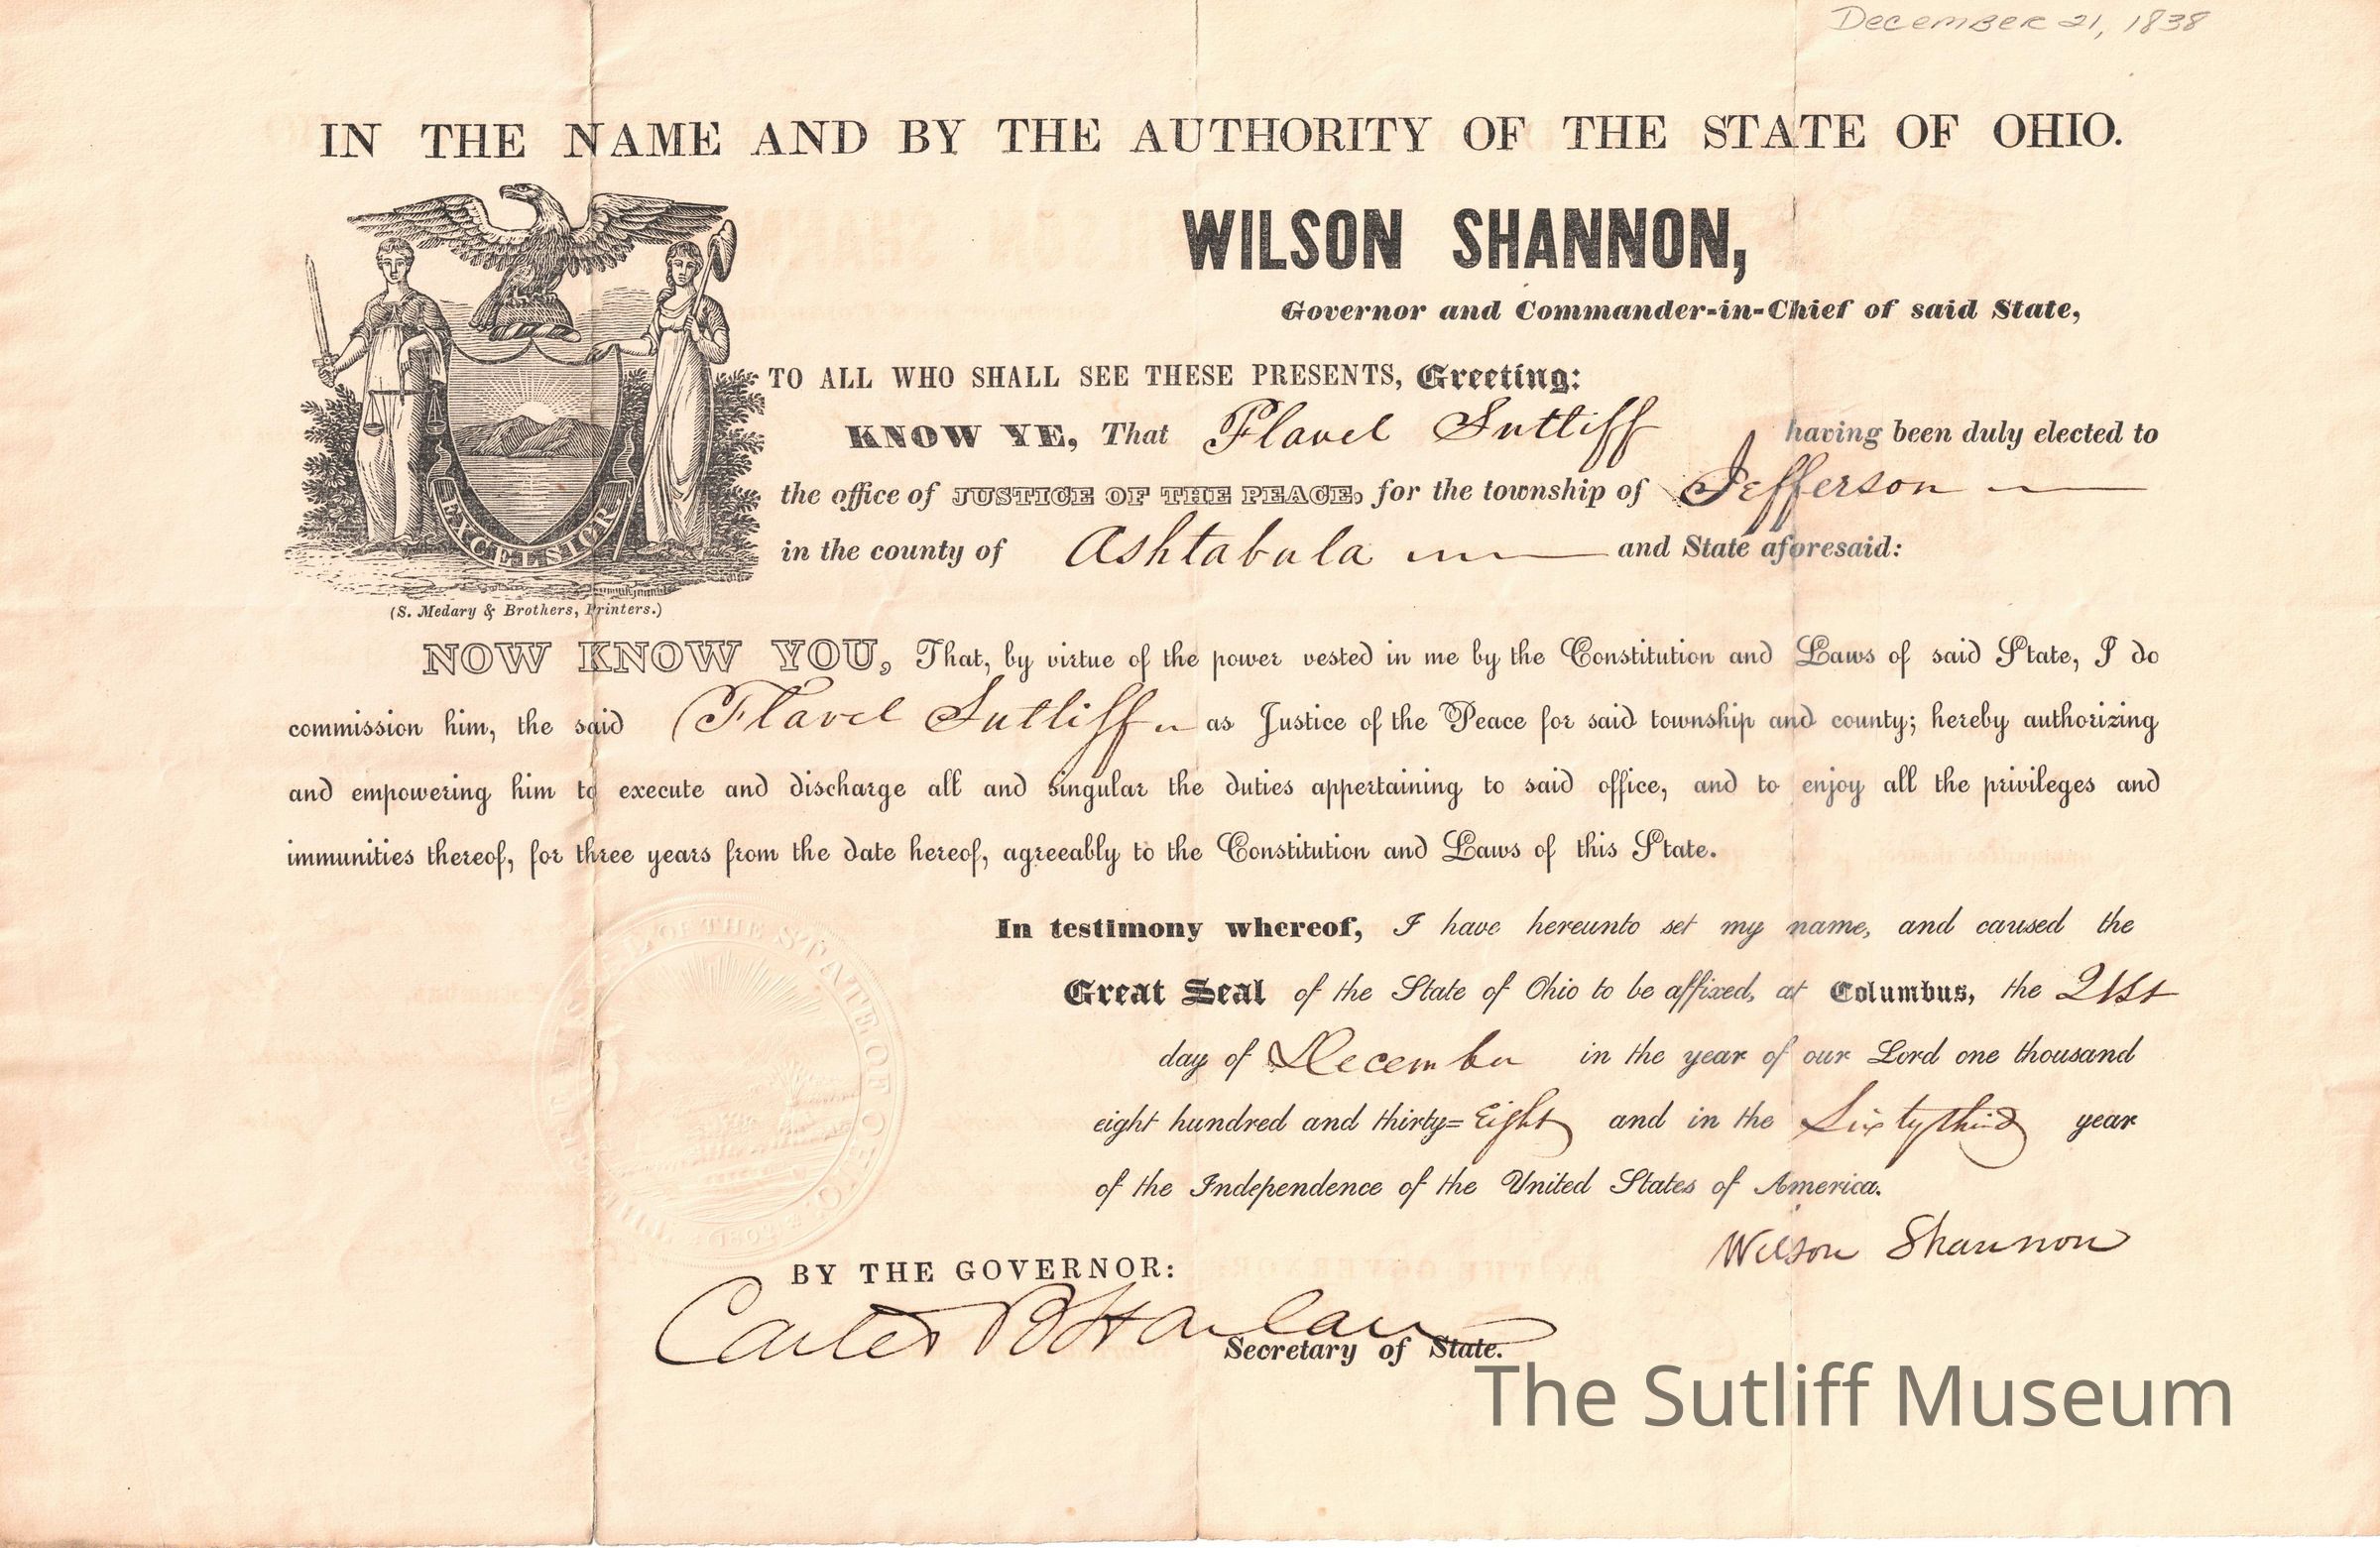 December 21, 1838
IN THE NAME AND BY THE AUTHORITY OF THE STATE OF OHIO.
WILSON SHANNON,
Governor and Commander-in-Chief of said State,
TO ALL WHO SHALL SEE THESE PRESENTS, Greeting:
KNOW YE, That Flavel Sutliff having been duly elected to
the office of JUSTICE OF THE PEACE, for the township of Jefferson
in the county of Ashtabula and State aforesaid:
EXCELSIOR
(S. Medary & Brothers, Printers.)
NOW KNOW YOU, That, by virtue of the power vested in me by the Constitution and Laws of said State, I do
commission him, the said Flavel Sutliff as Justice of the Peace for said township and county; hereby authorizing
and empowering him to execute and discharge all and singular the duties appertaining to said office, and to enjoy all the privileges and
immunities thereof, for three years from the date hereof, agreeably to the Constitution and Laws of this State.
In testimony whereof, I have hereunto set my name, and caused the
Great Seal of the State of Ohio to be affixed, at Columbus, the 21st
day of December in the year of our Lord one thousand
eight hundred and thirty=Eight and in the Sixty third year
of the Independence of the United States of America.
SEAL OF THE STATE OF OHIO
Wilson Shannon
BY THE GOVERNOR:
Carter B Harlan
Secretary of State.
The Sutliff Museum